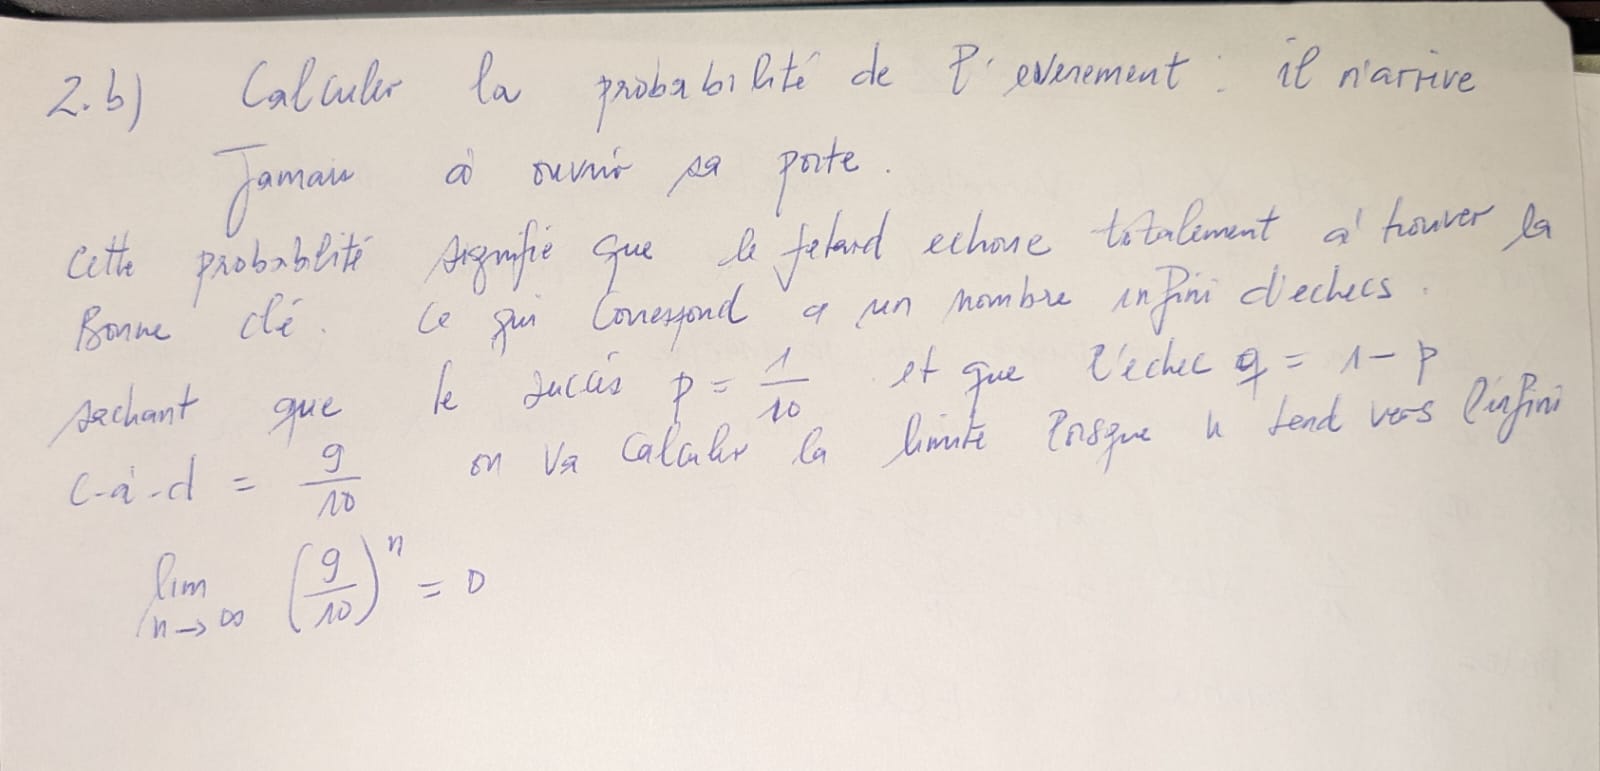 2.b) Calculer la probabilité de l'evenement : il n'arrive
Jamais à ouvrir sa porte.
Cette probabilité signifie que le fetard echoue totalement à trouver la
Bonne clé. Ce qui Correspond a un nombre infini d'echecs.
sachant que le succès p = 1/10 et que l'echec q = 1 - p
c-à-d = 9/10 on va calculer la limite lorsque n tend vers l'infini
lim n→∞ (9/10)^n = 0